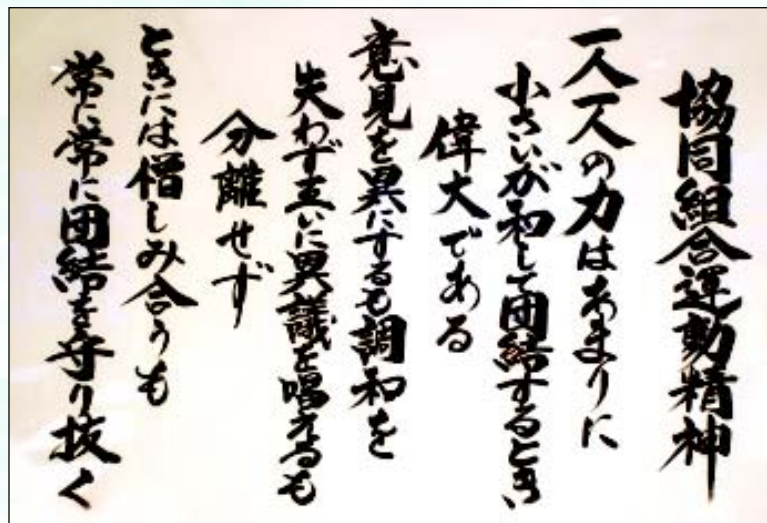 協同組合運動精神
一人一人の力はあまりに
小さいが和して団結するとき
偉大である
意見を異にするも調和を
失わず互いに異議を唱えるも
分離せず
ときには僧しみ合うも
常に常に団結を守り抜く